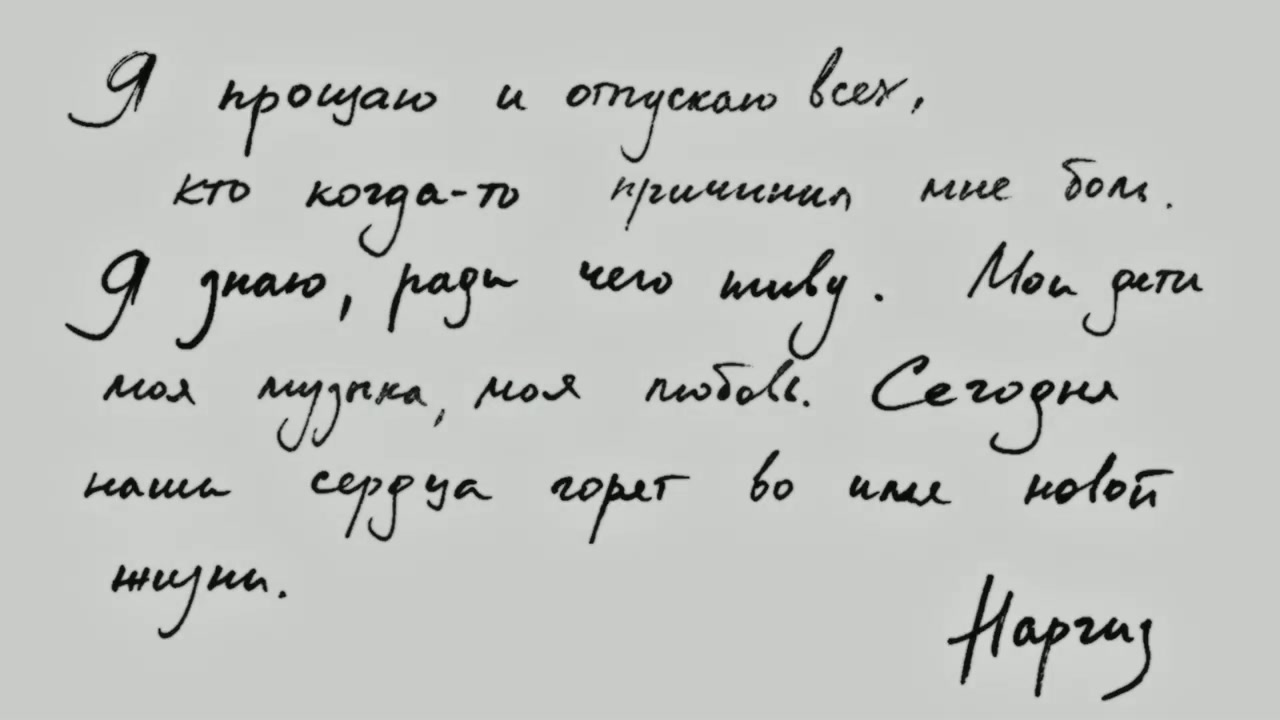 Я прощаю и отпускаю всех,
кто когда-то причинил мне боль.
Я знаю, ради чего живу. Мои дети
моя музыка, моя любовь. Сегодня
наши сердца горят во имя новой
жизни.
Наргиз